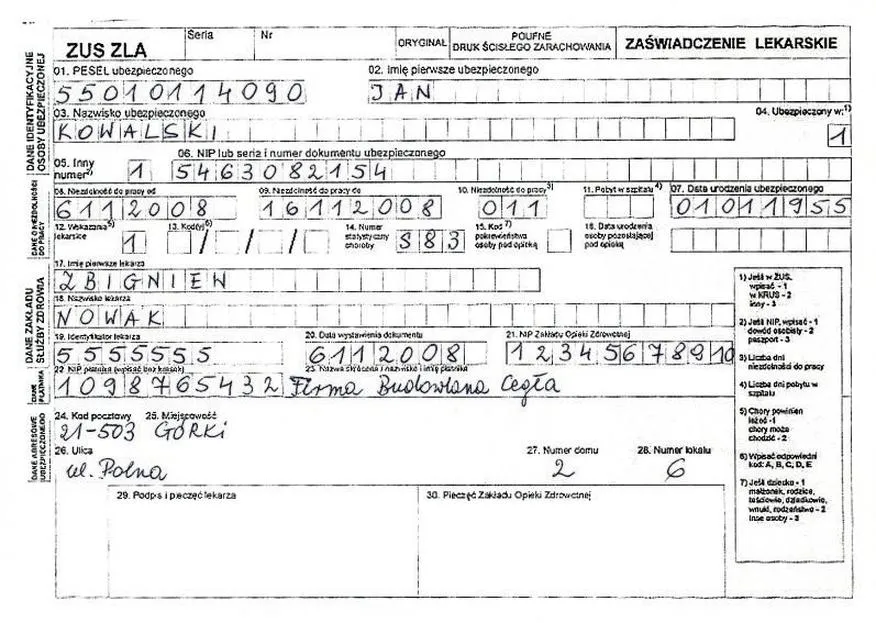 ZUS ZLA
Seria
Nr
ORYGINAŁ
POUFNE
DRUK ŚCISŁEGO ZARACHOWANIA
ZAŚWIADCZENIE LEKARSKIE
DANE IDENTYFIKACYJNE
OSOBY UBEZPIECZONEJ
01. PESEL ubezpieczonego
02. Imię pierwsze ubezpieczonego
55010114090
JAN
03. Nazwisko ubezpieczonego
04. Ubezpieczony w: 1)
KOWALSKI
1
05. Inny
numer 2)
1
06. NIP lub seria i numer dokumentu ubezpieczonego
5463082154
DANE O NIEZDOLNOŚCI
DO PRACY
08. Niezdolność do pracy od
09. Niezdolność do pracy do
10. Niezdolność do pracy 3)
11. Pobyt w szpitalu 4)
07. Data urodzenia ubezpieczonego
6112008
16112008
011
01011955
12. Wskazania 5)
lekarskie
1
13. Kod(y) 6)
/ / /
14. Numer
statystyczny
choroby
S83
15. Kod 7)
pokrewieństwa
osoby pod opieką
16. Data urodzenia
osoby pozostającej
pod opieką
DANE ZAKŁADU
SŁUŻBY ZDROWIA
17. Imię pierwsze lekarza
ZBIGNIEW
18. Nazwisko lekarza
NOWAK
19. Identyfikator lekarza
20. Data wystawienia dokumentu
21. NIP Zakładu Opieki Zdrowotnej
5555555
6112008
12345678910
DANE
PŁATNIKA
22. NIP płatnika (wpisać bez kresek)
23. Nazwa skrócona / nazwisko i imię płatnika
1098765432
Firma Budowlana Cegła
DANE ADRESOWE
UBEZPIECZONEGO
24. Kod pocztowy
25. Miejscowość
21-503
GÓRKI
26. Ulica
27. Numer domu
28. Numer lokalu
ul. Polna
2
6
29. Podpis i pieczęć lekarza
30. Pieczęć Zakładu Opieki Zdrowotnej
1) Jeśli w ZUS,
wpisać - 1
w KRUS - 2
inny - 3
2) Jeśli NIP, wpisać - 1
dowód osobisty - 2
paszport - 3
3) Liczba dni
niezdolności do pracy
4) Liczba dni pobytu w
szpitalu
5) Chory powinien
leżeć - 1
chory może
chodzić - 2
6) Wpisać odpowiedni
kod: A, B, C, D, E
7) Jeśli dziecko - 1
małżonek, rodzice,
teściowie, dziadkowie,
wnuki, rodzeństwo - 2
inne osoby - 3